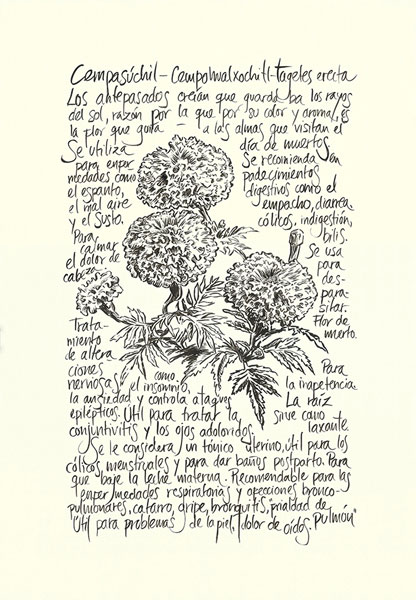 Cempasúchil – Cempohualxochitl – Tageles erecta
Los antepasados creían que guardaba los rayos
del sol, raízón por la que por su color y aroma, es
la flor que guía – a las almas que visitan el
día de muertos
Se utiliza
para enfer
medades como
el espanto,
el mal aire
y el susto.
Para
calmar
el dolor de
cabeza
Se recomienda en
padecimientos
digestivos como el
empacho, diarrea,
cólicos, indigestión,
bilis.
Se usa
para
des-
para-
sitar.
Flor de
muerto.
Trata-
miento
de altera
ciones
nerviosas como
el insomnio,
la ansiedad y controla ataques
epilépticos. Útil para tratar la
conjuntivitis y los ojos adoloridos.
Para
la inapetencia.
La raíz
sirve como
laxante.
Se le considera un tónico uterino, útil para los
cólicos menstruales y para dar baños postparto. Para
que baje la leche materna. Recomendable para las
enfermedades respiratorias y afecciones bronco-
pulmonares, catarro, gripe, bronquitis, "frialdad de
pulmón"
Útil para problemas de la piel, dolor de oídos.